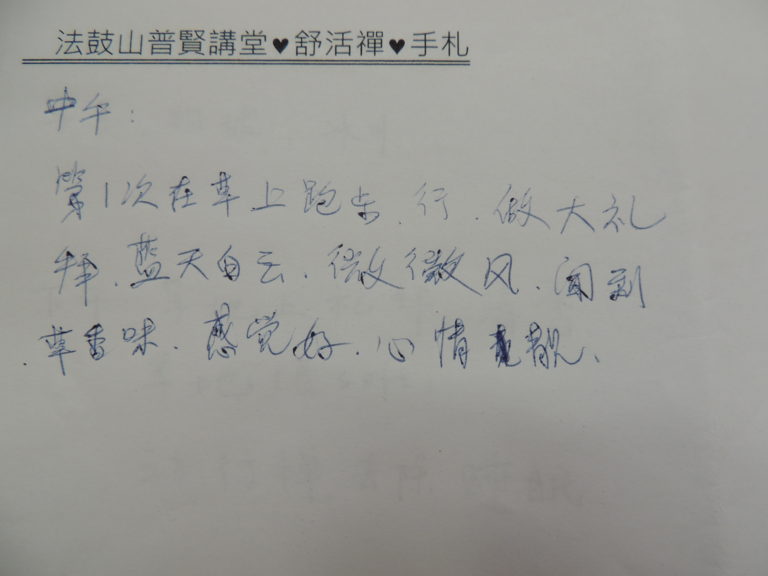 法鼓山普賢講堂♥舒活禪♥手札
中午：
第1次在草上跑步、行、做大礼
拜、藍天白云、微微风、闻到
草香味、感觉好、心情